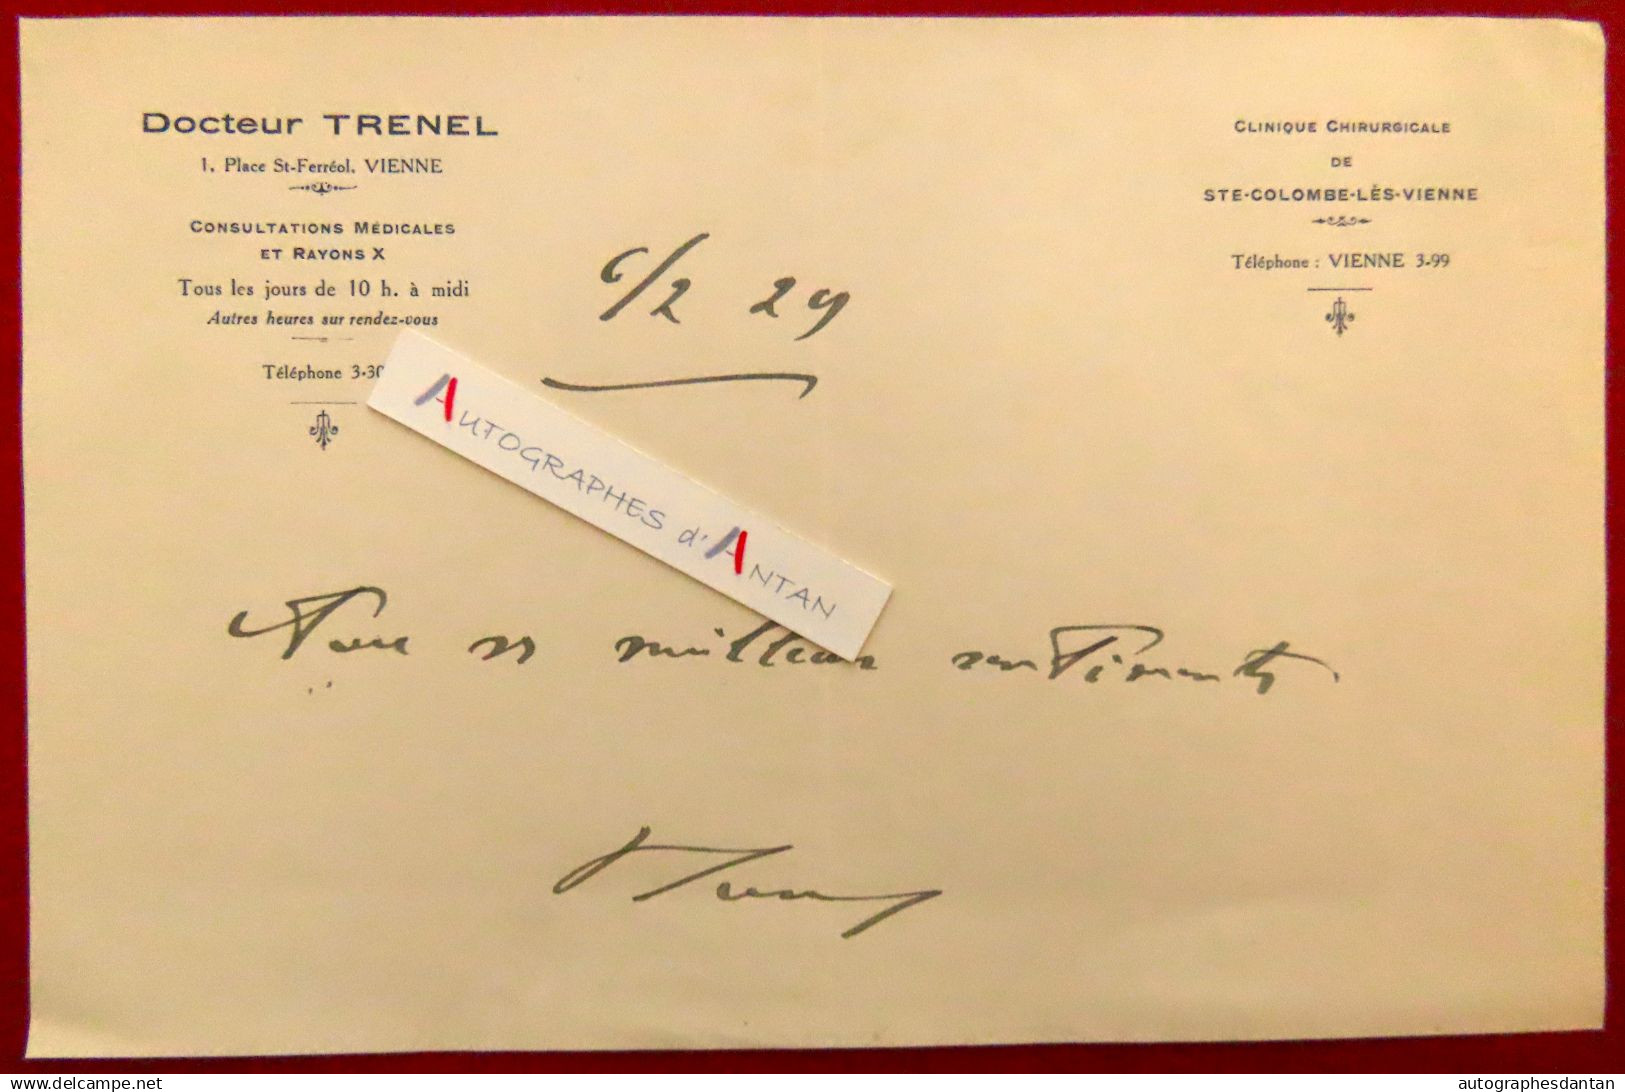 Docteur TRENEL
1, Place St-Ferréol, VIENNE
CONSULTATIONS MÉDICALES
ET RAYONS X
Tous les jours de 10 h. à midi
Autres heures sur rendez-vous
Téléphone 3-30
CLINIQUE CHIRURGICALE
DE
STE-COLOMBE-LÈS-VIENNE
Téléphone : VIENNE 3-99
6/2 29
AUTOGRAPHES d'ANTAN
meilleurs sentiments.
www.delcampe.net
autographesdantan